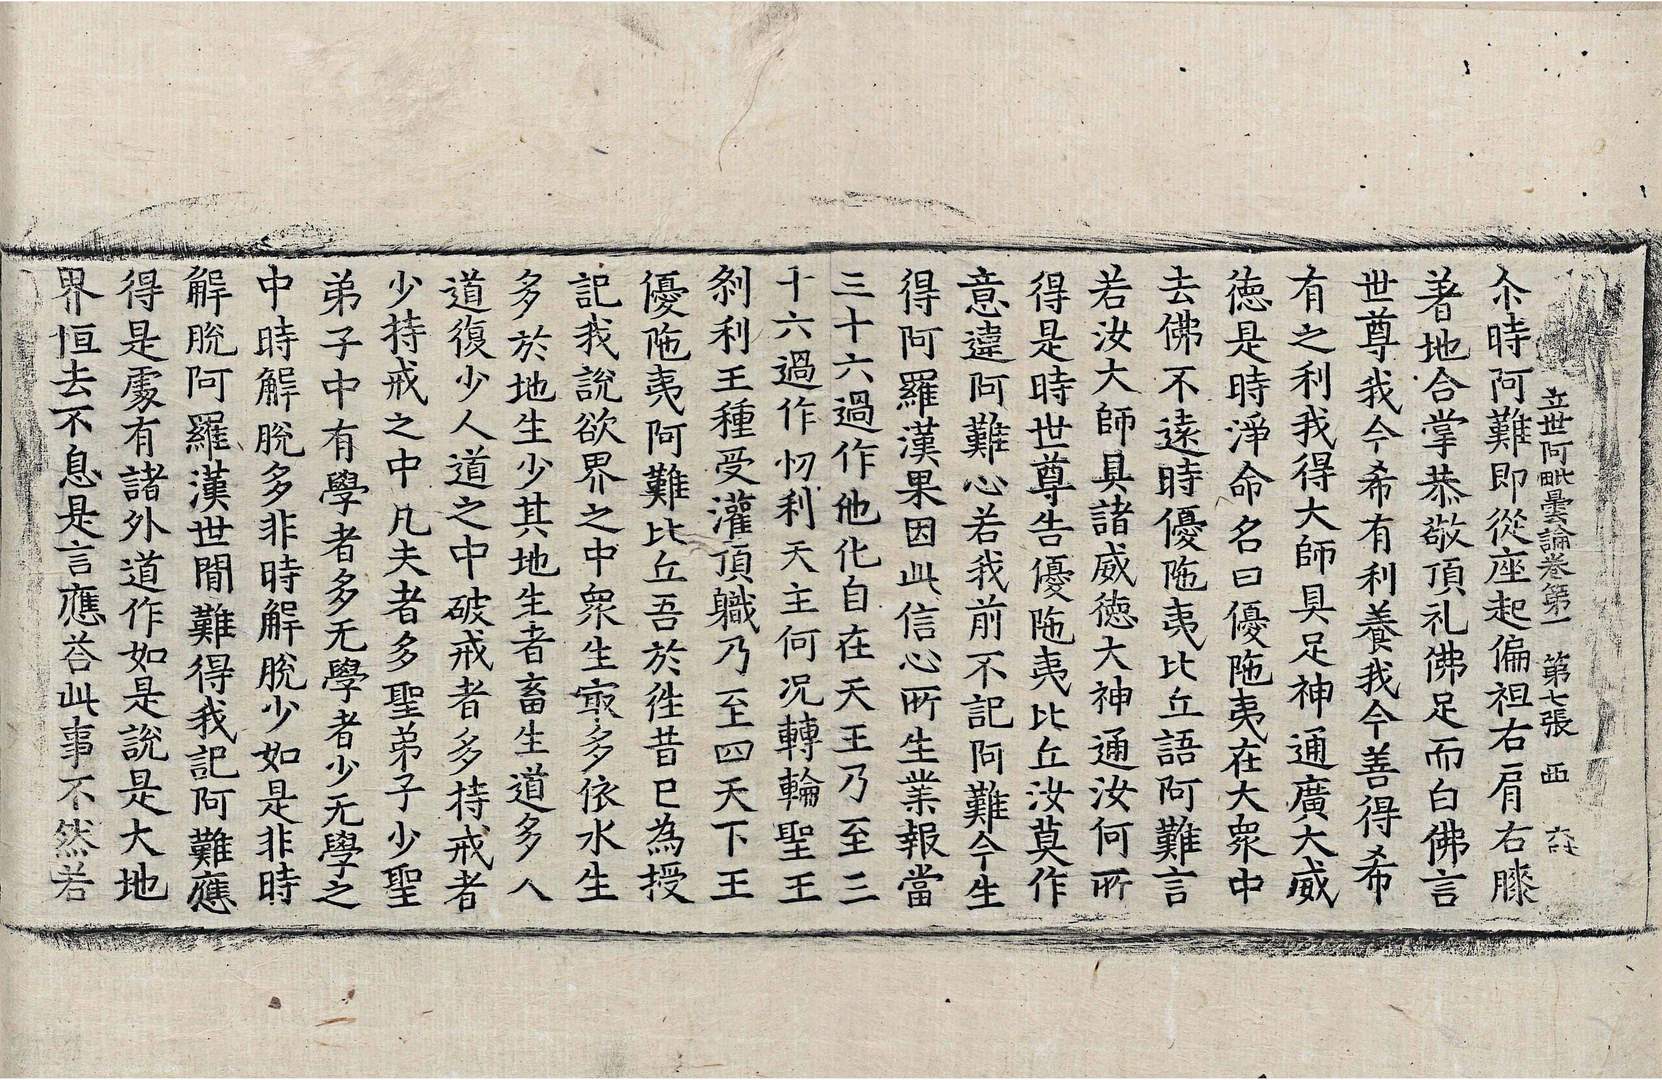 立世阿毗曇論卷第一　第七張　西
尒時阿難即從座起偏袒右肩右膝
著地合掌恭敬頂礼佛足而白佛言
世尊我今希有利養我今善得希
有之利我得大師具足神通廣大威
徳是時淨命名曰優陁夷在大衆中
去佛不遠時優陁夷比丘語阿難言
若汝大師具諸威徳大神通汝何所
得是時世尊告優陁夷比丘汝莫作
意違阿難心若我前不記阿難今生
得阿羅漢果因此信心所生業報當
三十六過作他化自在天王乃至三
十六過作忉利天主何况轉輪聖王
剎利王種受灌頂軄乃至四天下王
優陁夷阿難比丘吾於徃昔已為授
記我說欲界之中衆生㝡多依水生
多於地生少其地生者畜生道多人
道復少人道之中破戒者多持戒者
少持戒之中凡夫者多聖弟子少聖
弟子中有學者多无學者少无學之
中時解脫多非時解脫少如是非時
解脫阿羅漢世間難得我記阿難應
得是處有諸外道作如是說是大地
界恒去不息是言應荅此事不然若